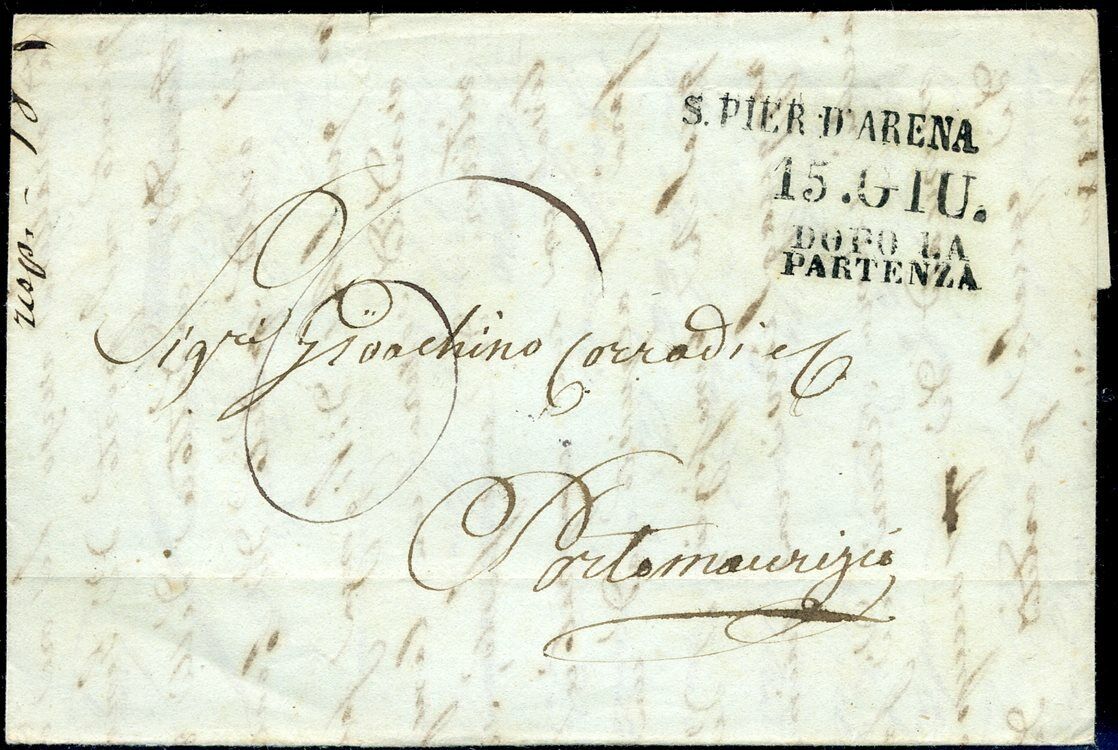 S. PIER D'ARENA
15.GIU.
DOPO LA
PARTENZA
Sigri Gioachino Corradi e C
Portomaurizio
risp. 18